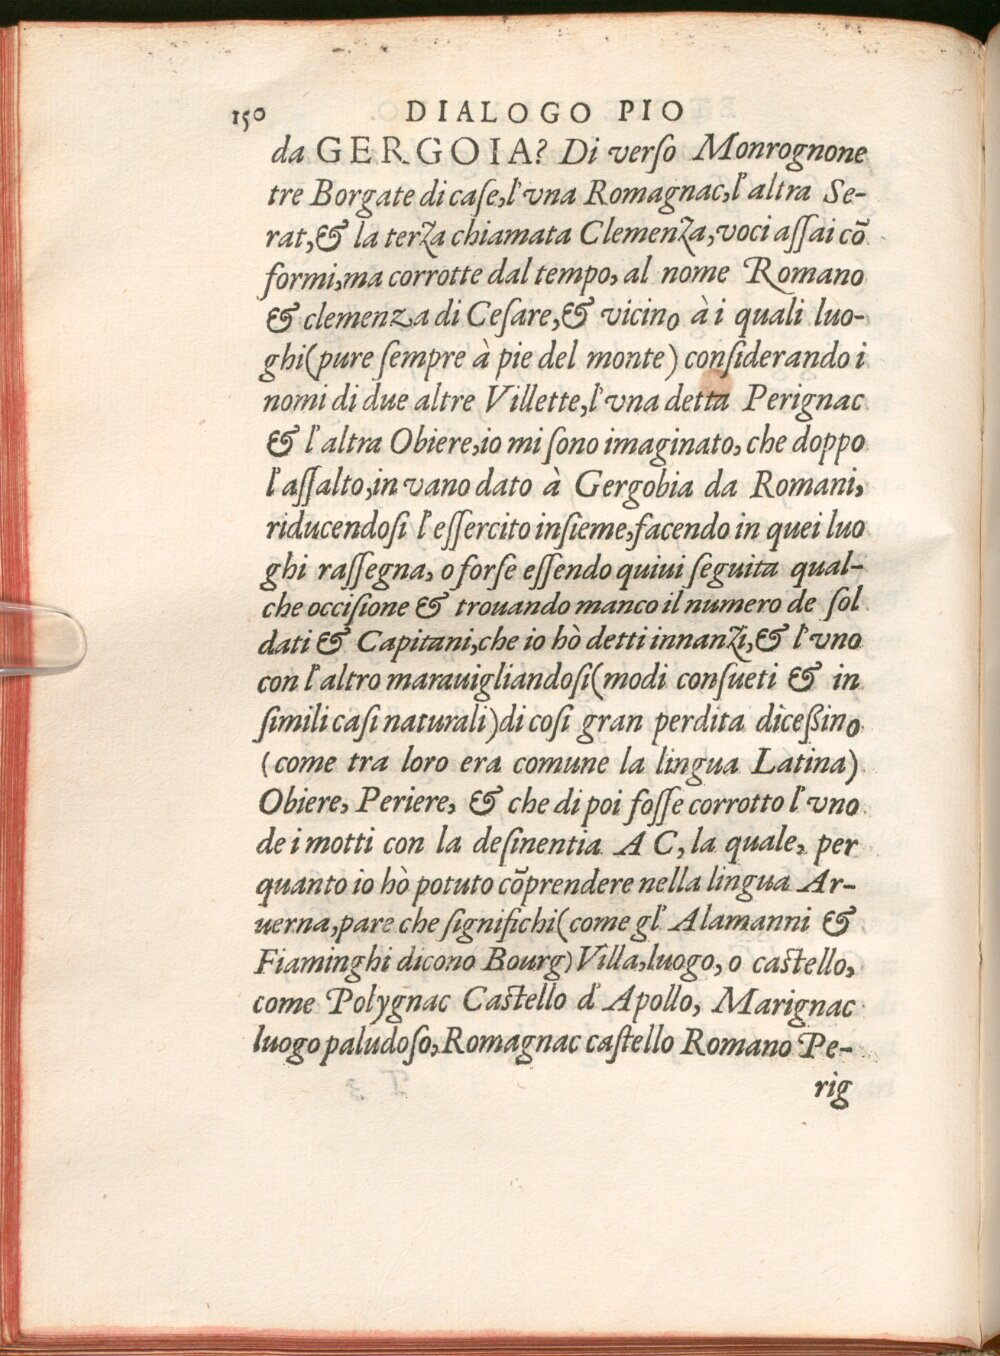 150 DIALOGO PIO
da GERGOIA? Di verso Monrognone
tre Borgate di case, l'vna Romagnac, l'altra Se-
rat, & la terza chiamata Clemenza, voci assai cõ
formi, ma corrotte dal tempo, al nome Romano
& clemenza di Cesare, & vicino à i quali luo-
ghi (pure sempre à pie del monte) considerando i
nomi di due altre Villette, l'vna detta Perignac
& l'altra Obiere, io mi sono imaginato, che doppo
l'assalto, in vano dato à Gergobia da Romani,
riducendosi l'essercito insieme, facendo in quei luo
ghi rassegna, o forse essendo quiui seguita qual-
che occisione & trouando manco il numero de sol
dati & Capitani, che io hò detti innanzi, & l'vno
con l'altro marauigliandosi (modi consueti & in
simili casi naturali) di cosi gran perdita diceßino
(come tra loro era comune la lingua Latina)
Obiere, Periere, & che di poi fosse corrotto l'vno
de i motti con la desinentia AC, la quale, per
quanto io hò potuto cõprendere nella lingua Ar-
uerna, pare che significhi (come gl' Alamanni &
Fiaminghi dicono Bourg) Villa, luogo, o castello,
come Polygnac Castello d'Apollo, Marignac
luogo paludoso, Romagnac castello Romano Pe-
rig